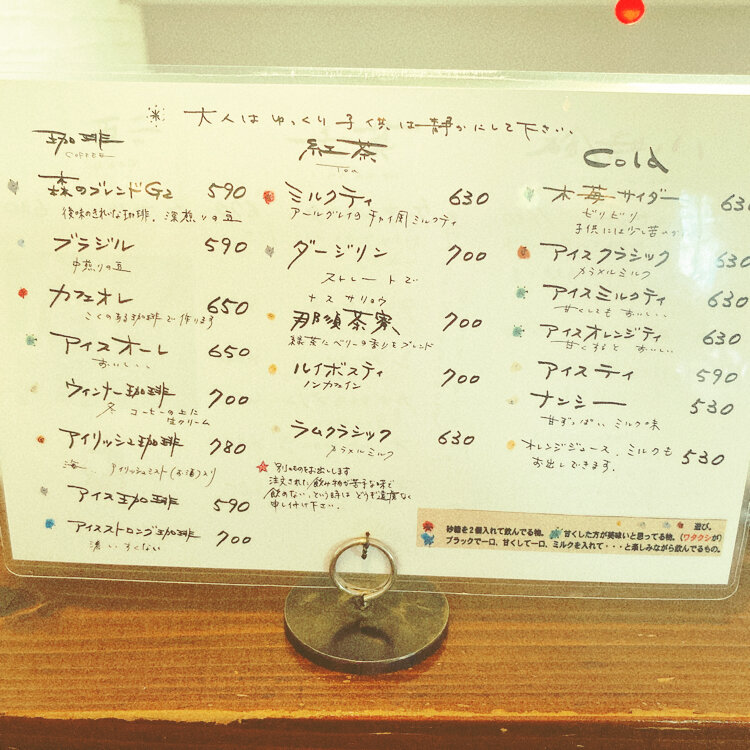 大人は ゆっくり 子供は静かにして下さい、
珈琲
COFFEE
森のブレンドG2 590
後味のきれいな珈琲、深煎りの豆
ブラジル 590
中煎りの豆
カフェオレ 650
こくのある珈琲で作ります
アイスオーレ 650
おいしい、
ウィンナー珈琲 700
冬 コーヒーの上に
生クリーム
アイリッシュ珈琲 780
アイリッシュミスト(お酒)入り
アイス珈琲 590
アイスストロング珈琲 700
濃い、すくない
紅茶
Tea
ミルクティ 630
アールグレイの チャイ風 ミルクティ
ダージリン 700
ストレートで
ナス サリョウ
那須茶寮 700
緑茶にベリーの香りをブレンド
ルイボスティ 700
ノンカフェイン
ラムクラシック 630
カラメルミルク
別のものをお出しします
注文された飲み物が苦手な味で
飲めない、という時は どうぞ遠慮なく
申し付け下さい。
Cold
木苺サイダー 630
ピリピリ
子供には少し苦い
アイスクラシック 630
カラメルミルク
アイスミルクティ 630
甘くしても おいしい、
アイスオレンジティ 630
甘くすると おいしい
アイスティ 590
ナンシー 530
甘ずっぱい ミルク味
オレンジジュース、ミルクも 530
お出しできます.
遊び。
砂糖を2個入れて飲んでる物。 甘くした方が美味いと思ってる物。(ワタクシが)
ブラックで一口、甘くして一口、ミルクを入れて・・・と楽しみながら飲んでるもの。